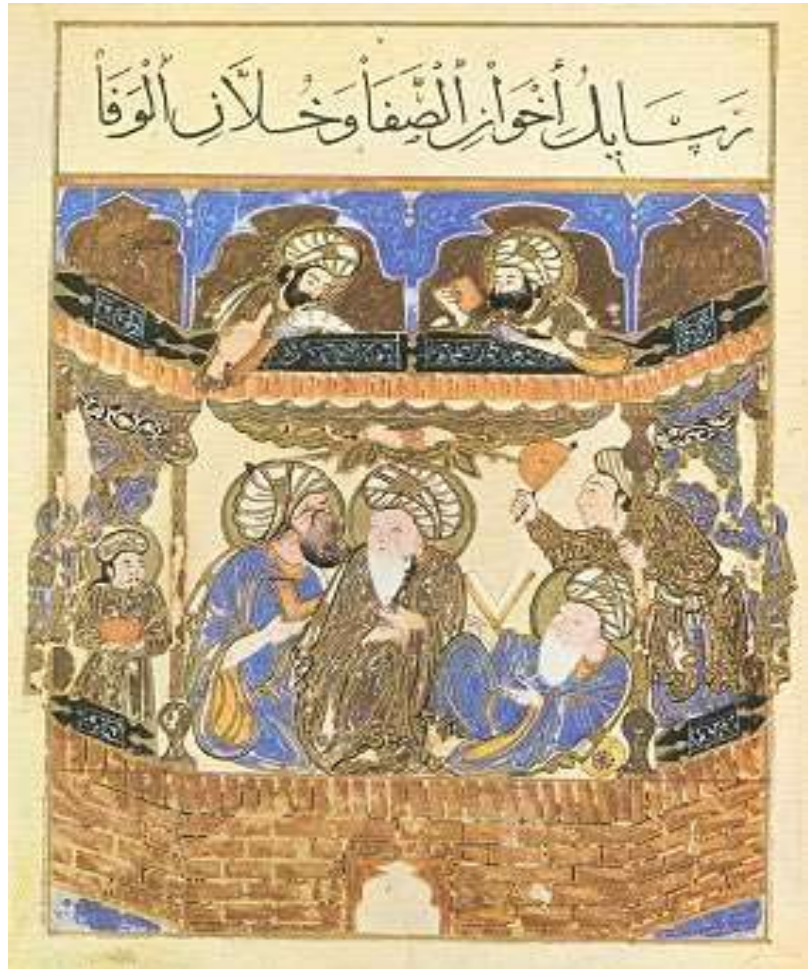 رَسَايِلُ أَخْوَانِ الصَّفَاْ وَخُلاَّنِ الْوَفَاْ